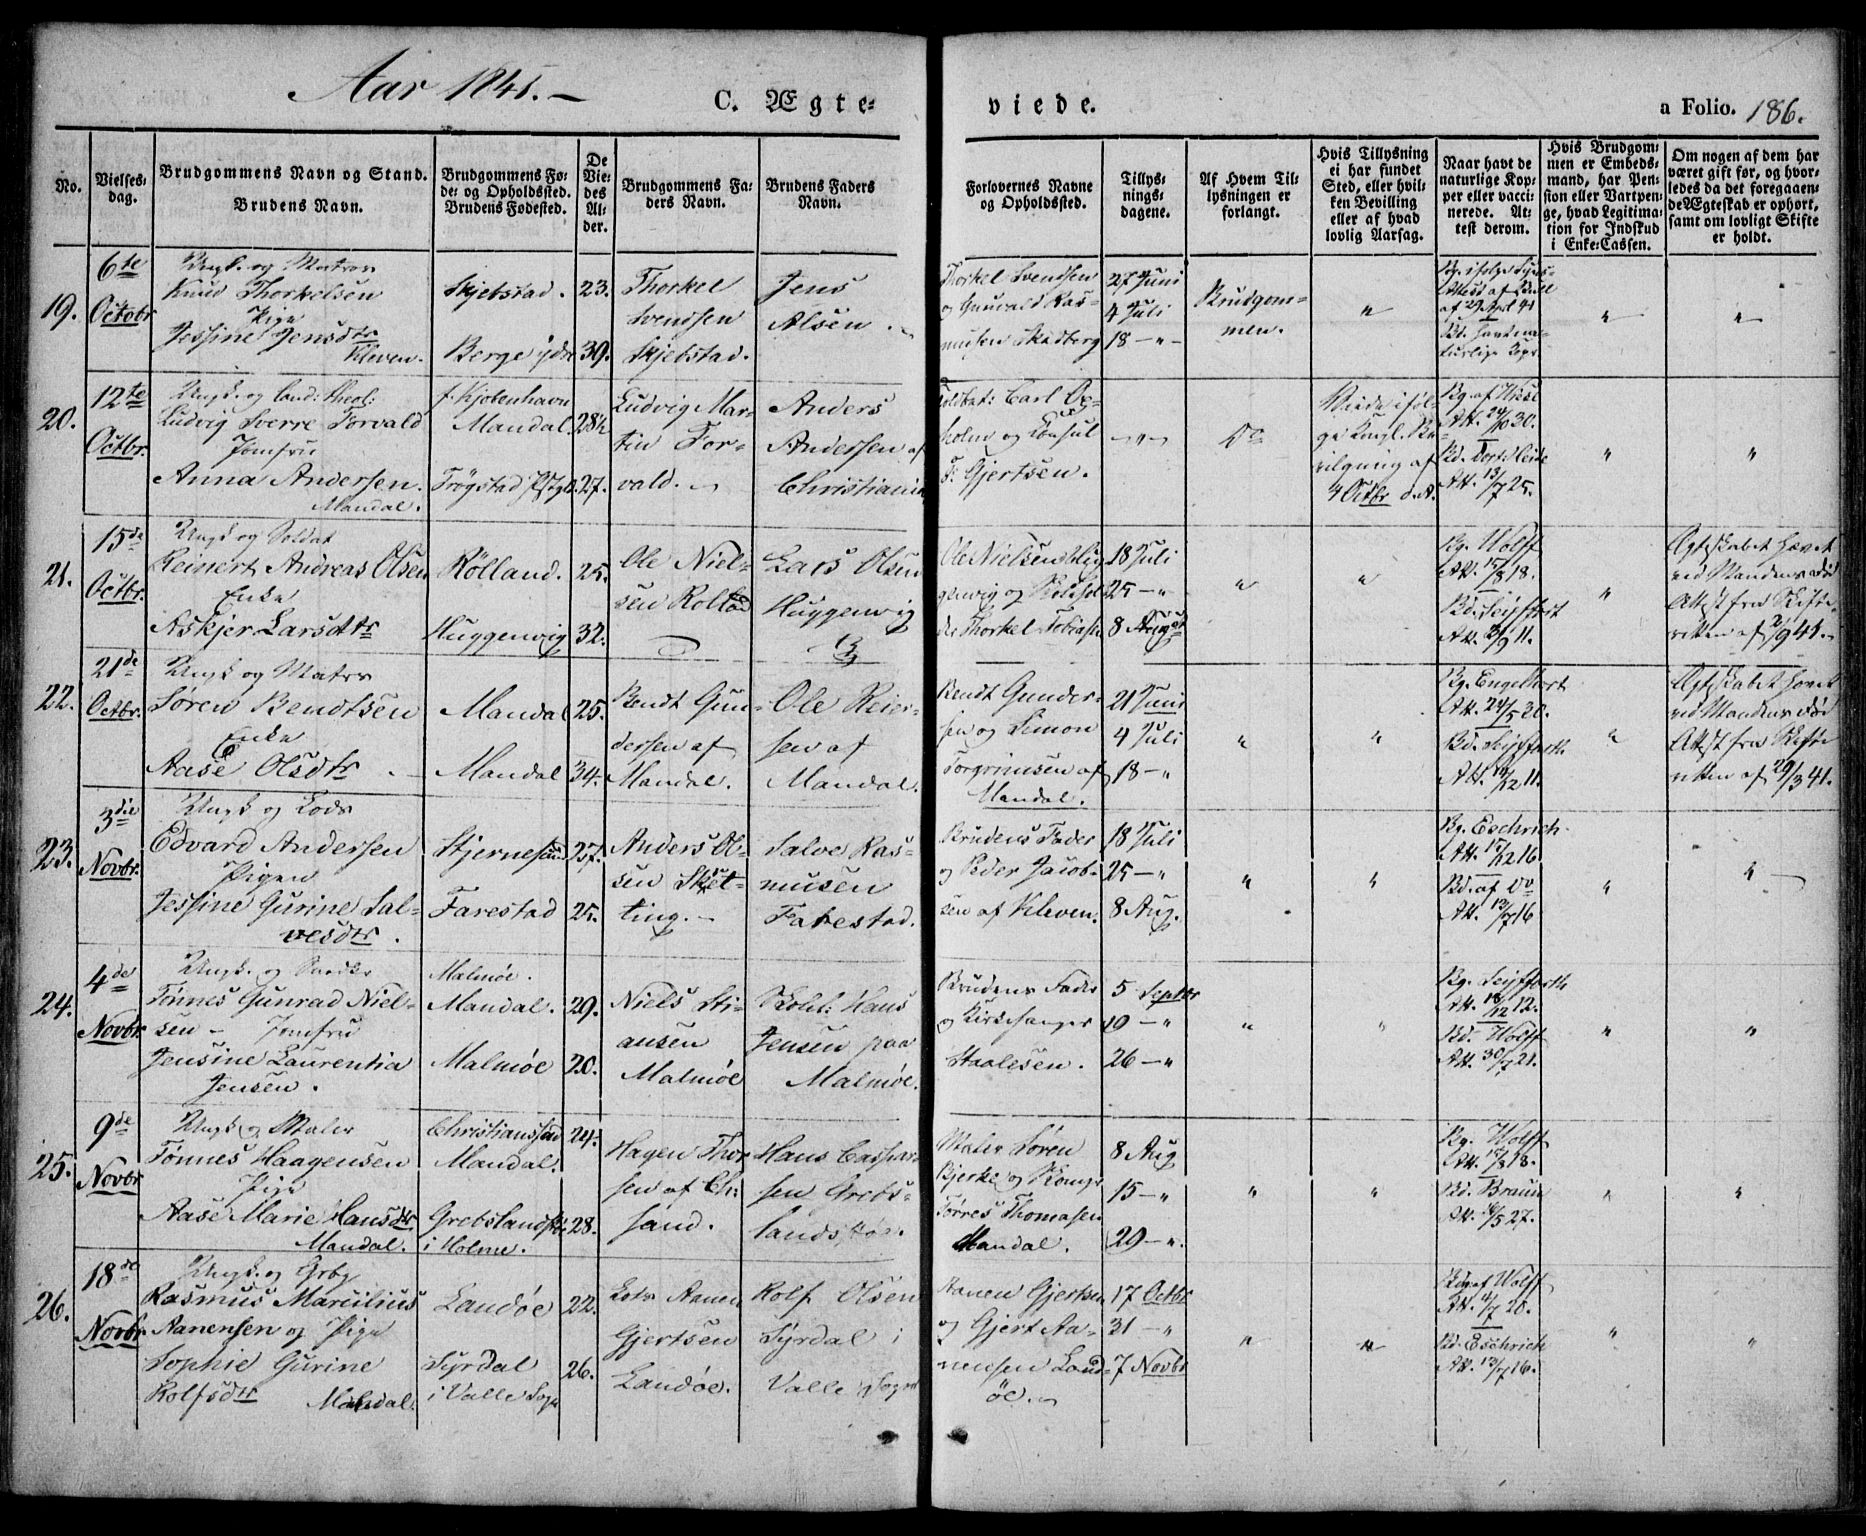 Aar 1841. –
C. Ægte=
viede.
a Folio. 186.
No.
Vielses=
dag.
Brudgommens Navn og Stand.
Brudens Navn.
Brudgommens Fø=
de= og Opholdssted.
Brudens Fødested.
De
Vie=
des
Al=
der.
Brudgommens Fa=
ders Navn.
Brudens Faders
Navn.
Forlovernes Navne
og Opholdssted.
Tillys=
nings=
dagene.
Af Hvem Til=
lysningen er
forlangt.
Hvis Tillysning
ei har fundet
Sted, eller hvil=
ken Bevilling
eller af hvad
lovlig Aarsag.
Naar havt de
naturlige Kop=
per eller vacci=
nerede. At=
test derom.
Hvis Brudgom=
men er Embeds=
mand, har Pen=
sion eller Vartpen=
ge, hvad Legitima=
tion for Indskud
i Enke=Cassen.
Om nogen af dem har
været gift før, og hvor=
ledes da det foregaaen=
de Ægteskab er ophørt,
samt om lovligt Skifte
er holdt.
19.
6te
Octobr
Ungk. og Matros
Knud Thorkelsen
Pige
Jessine Jensdtr
Kleven.
Skjebstad.
Berge ydre
23.
39.
Thorkel
Svendsen
Skjebstad.
Jens
Alsen
Thorkel Svendsen
og Gunvald Ras=
musen Skadberg
27 Juni
4 Juli
18 – "
Brudgom=
men.
"
Bd. havt na=
turlige Kopr
"
"
20.
12te
Octbr.
Ungk. og Cand: theol:
Ludvig Sverre Torvald
Jomfru
Anna Andersen.
Mandal.
f. Kjøbenhavn
Mandal.
Trøgstad
28½
27.
Ludvig Mar=
tin Tor=
vald.
Anders
Andersen af
Christiania
Carl
holm og Consul
T: Gjertsen.
– " –
Do
Viede iføl=
ge Kongl. Be=
vilgning af
4 Octbr d. A.
Att. 24/10 30.
Att. 13/7 25.
"
"
21.
15de
Octbr.
Ungk og Soldat
Reinert Andreas Olsen
Enke
Askjer Larsdtr
Rölland.
Huggenvig
25.
32.
Ole Niel=
sen
Lars Olsen
Huggenvig
Ole Nielsen
genvig og
Thorkel Tobiasen
18 Juli
25 – "
8 August
"
"
Bg. Wolff
Att. 15/8 18.
Bd. Seyffart
Att. 3/9 11.
"
Ægteskabet hævet
ved Mandens død
Attest fra Skifte=
retten af 2/9 41.
22.
21de
Octbr.
Ungk og Matros
Søren Bendtsen
Enke
Aase Olsdtr
Mandal
Mandal
25.
34.
Bendt Gun=
dersen af
Mandal.
Ole Reier=
sen af
Mandal.
Bendt Gunder=
sen og Simon
Torgrimsen af
Mandal.
21 Juni
4 Juli
18 – "
"
"
Bg. Engelhart
Att. 24/5 30.
Bd. Seyffarth
Att. 12/12 11.
"
Ægteskabet hævet
ved Mandens død
Attest fra Skifte
retten af 29/3 41.
23.
3die
Novbr.
Ungk og Lods
Edvard Andersen
Pigen
Jessine Gurine Sal=
vesdtr.
Stjernesund
Farestad
27.
25.
Anders Ol=
sen Sket=
ting.
Salve Ras=
musen
Farestad.
Brudens Fader
og Peder Jacob=
sen af Kleven.
18 Juli
25 – "
8 Aug.
"
"
Bg. Eschrich
Att. 15/12 16
Bd. af Do
Att. 13/7 16
"
"
24.
4de
Novbr
Ungk. og Snedker
Tønnes Gunrad Niel=
sen – Jomfru
Jensine Laurentia
Jensen.
Malmøe.
Mandal.
Malmøe
29.
20.
Niels Sti=
ansen
Malmøe
Skolel: Hans
Jensen paa
Malmøe.
Brudens Fader
og Kirkesanger
Staalesen.
5 Septbr
19 – "
26 – "
"
"
Bg. Seyffarth
Att. 18/12 12.
Bd. Wolff
Att. 30/7 21.
"
"
25.
9de
Novbr
Ungk. og Maler
Tønnes Haagensen
Pige
Aase Marie Hansdtr
Mandal.
Christianssand
Mandal.
i Holme.
24.
28.
Hagen Thor
sen af Ch:
sand.
Hans Caspar=
sen Grets=
landstøe.
Maler Søren
Bjerke og
Tørres Thomasen
Mandal.
8 Aug
15 – "
29 – ".
"
"
Bg. Wolff
Att. 15/8 18.
Bd. Braun
"
"
26.
18de
Novbr
Ungk. og
Rasmus Marcilius
Aanensen og Pige
Sophie Gurine
Rolfsdtr
Mandal.
Landøe
Syrdal
i Valle Sogn
22.
26.
Lods Aanen
Gjertsen
Landøe.
Rolf Olsen
Syrdal i
Valle Sogn
Aanen Gjertsen
og Gjert Aa=
nensen Land=
öe.
17 Octbr
31 – "
7 Novbr
"
"
Bg. af Wolff
Bd. Eschrich
Att. 13/7 16.
"
"